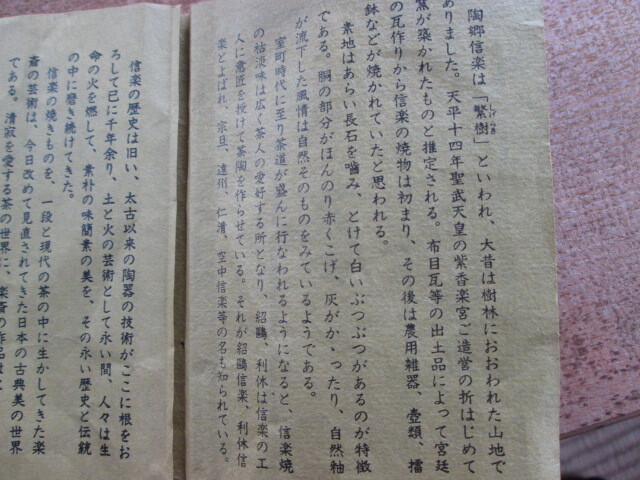 陶郷信楽は「繁樹」といわれ、大昔は樹林におおわれた山地で
ありました。天平十四年聖武天皇の紫香楽宮ご造営の折はじめて
窯が築かれたものと推定される。布目瓦等の出土品によって宮廷
の瓦作りから信楽の焼物は初まり、その後は農用雑器、壺類、擂
鉢などが焼かれていたと思われる。
素地はあらい長石を嚙み、とけて白いぶつぶつがあるのが特徴
である。胴の部分がほんのり赤くこげ、灰がかゝったり、自然釉
が流下した風情は自然そのものをみているようである。
室町時代に至り茶道が盛んに行なわれるようになると、信楽焼
の枯淡味は広く茶人の愛好する所となり、紹鷗、利休は信楽の工
人に意匠を授けて茶陶を作らせている。それが紹鷗信楽、利休信
楽とよばれ、宗旦、遠州、仁清、空中信楽等の名も知られている。
信楽の歴史は旧い、太古以来の陶器の技術がここに根をお
ろして已に千年余り、土と火の芸術として永い間、人々は生
命の火を燃して、素朴の味簡素の美を、その永い歴史と伝統
の中に磨き続けてきた。
信楽の焼きものを、一段と現代の茶の中に生かしてきた楽
斎の芸術は、今日改めて見直されてきた日本の古典美の世界
である。清寂を愛する茶の世界に、楽斎の作名は